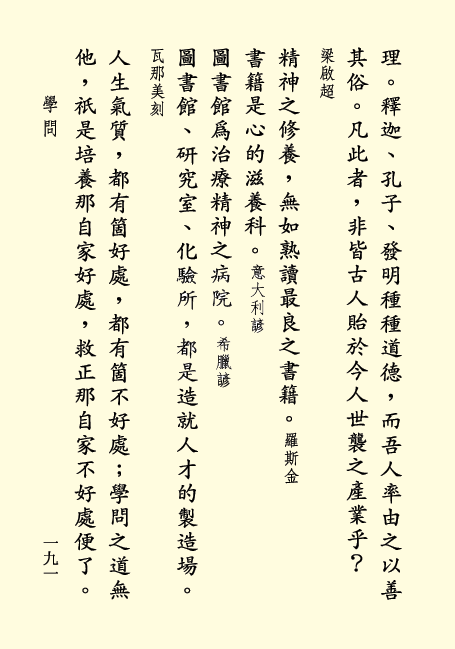 理。釋迦、孔子、發明種種道德，而吾人率由之以善
其俗。凡此者，非皆古人貽於今人世襲之產業乎？
梁啟超
精神之修養，無如熟讀最良之書籍。羅斯金
書籍是心的滋養科。意大利諺
圖書館為治療精神之病院。希臘諺
圖書館、研究室、化驗所，都是造就人才的製造場。
瓦那美刻
人生氣質，都有箇好處，都有箇不好處；學問之道無
他，祇是培養那自家好處，救正那自家不好處便了。
學問
一九一